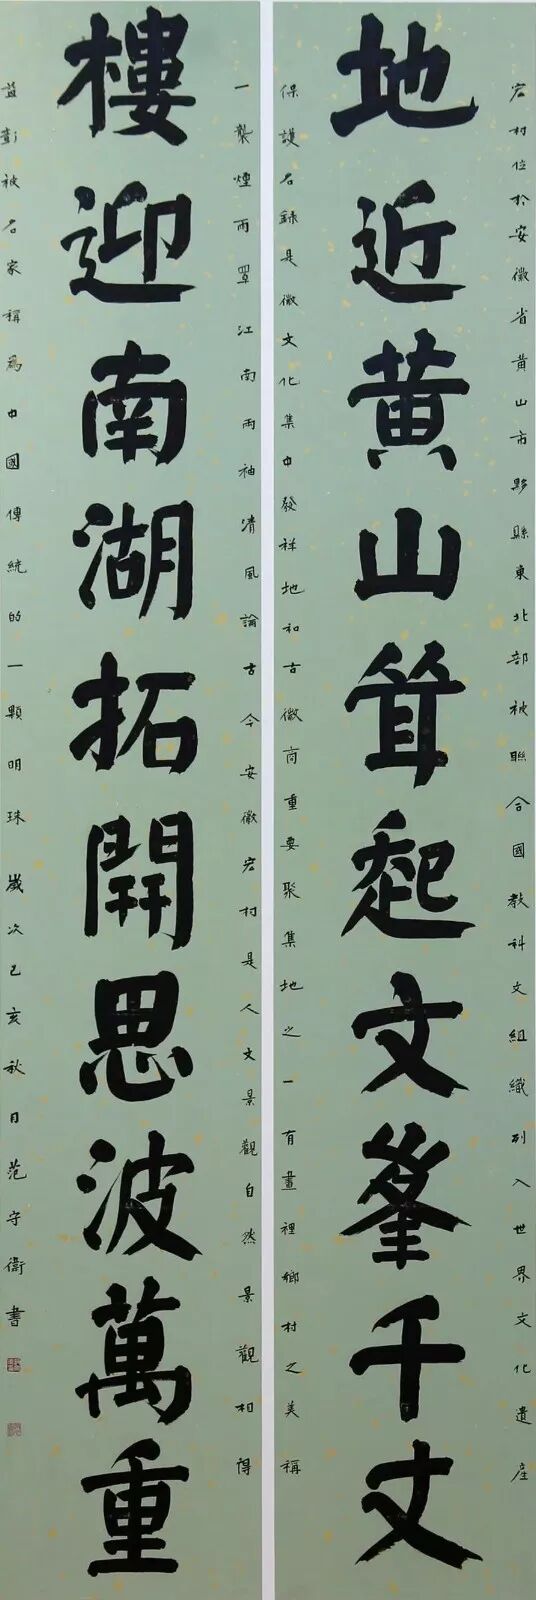 宏村位於安徽省黄山市黟縣東北部被聯合國教科文組織列入世界文化遺産
地近黄山耸起文峯千丈
保護名録是徽文化集中發祥地和古徽商重要聚集地之一有畫裡鄉村之美稱
一襲煙雨罩江南兩袖清風論古今安徽宏村是人文景觀自然景觀相得
樓迎南湖拓開思波萬重
益彰被名家稱爲中國傳統的一顆明珠歲次己亥秋日范守衛書